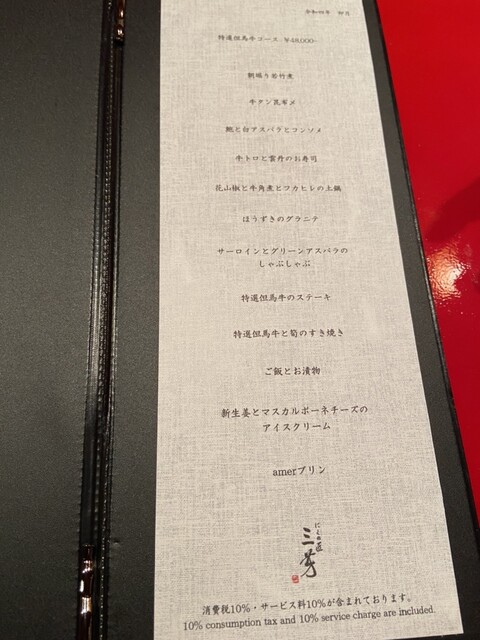 令和四年 卯月
特選但馬牛コース ¥48,000-
朝堀り若竹煮
牛タン昆布〆
鮑と白アスパラとコンソメ
牛トロと雲丹のお寿司
花山椒と牛角煮とフカヒレの土鍋
ほうずきのグラニテ
サーロインとグリーンアスパラの
しゃぶしゃぶ
特選但馬牛のステーキ
特選但馬牛と筍のすき焼き
ご飯とお漬物
新生姜とマスカルポーネチーズの
アイスクリーム
amerプリン
にくの匠
三芳
消費税10%・サービス料10%が含まれております。
10% consumption tax and 10% service charge are included.